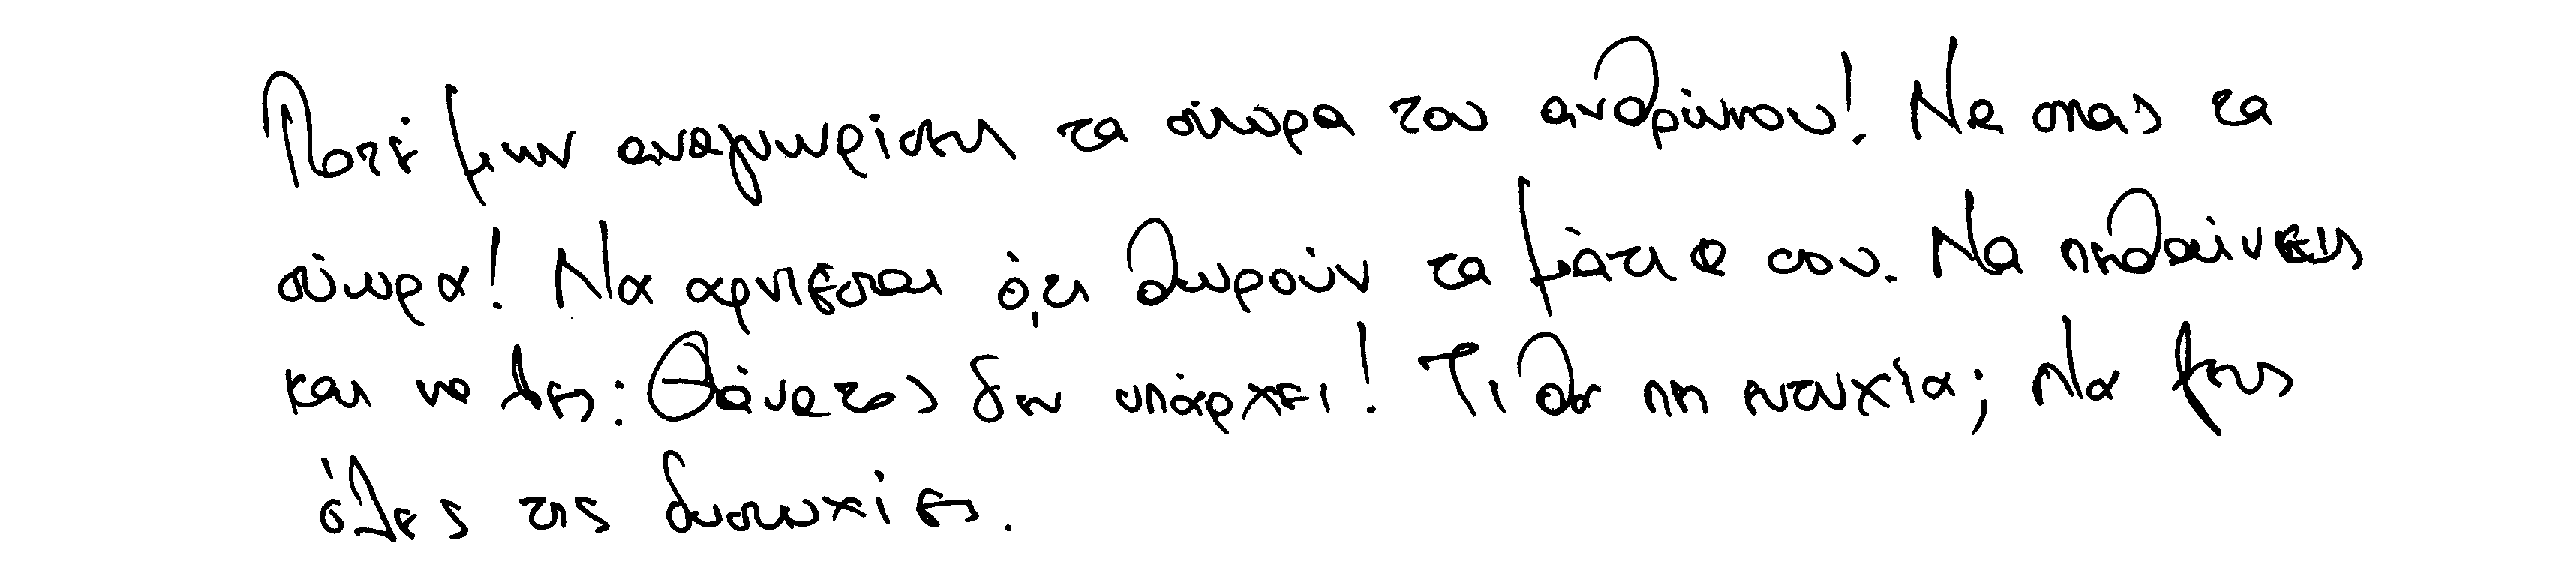 Ποτέ μην αναγνωρίσεις τα σύνορα του ανθρώπου! Να σπας τα
σύνορα! Να αρνιέσαι ό,τι θωρούν τα μάτια σου. Να πεθαίνεις
και να λες: Θάνατος δεν υπάρχει! Τι θα πει ευτυχία; Να ζεις
όλες τις δυστυχίες.